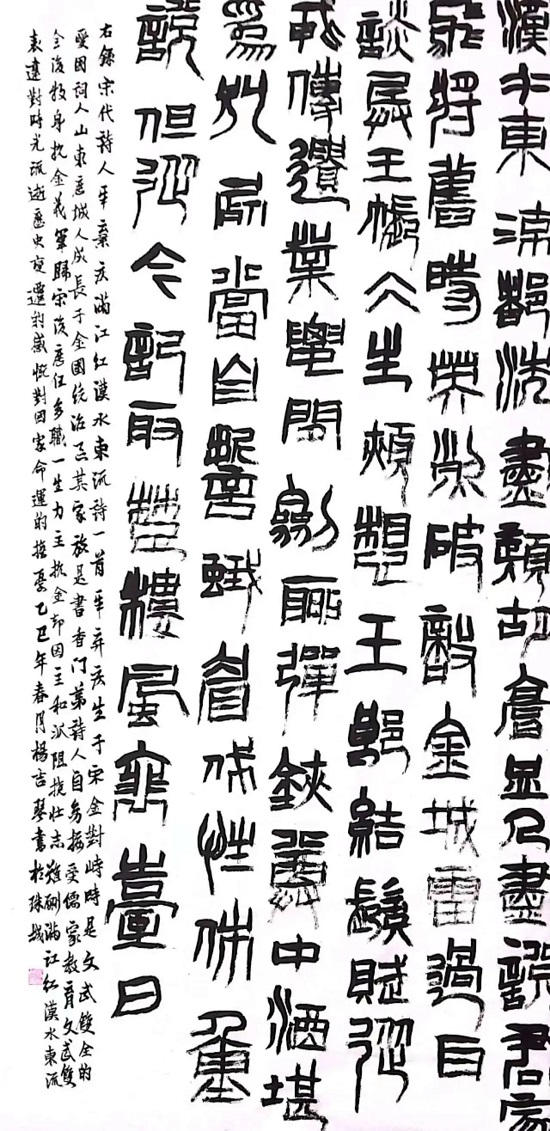 漢水東流都洗盡髭胡膏血人盡說君家
飛將舊時英烈破敵金城雷過耳
談兵玉帳冰生頰想王郎結髮賦從
戎傳遺業腰間劍聊彈鋏尊中酒堪
為別屍當自誓蛾眉伐性休重
說但從今記取楚樓風裴臺月
右錄宋代詩人辛棄疾滿江紅漢水東流詩一首辛弃疾生于宋金對峙時是文武雙全的
愛國詞人山東歷城人成長于金國統治區其家族是書香門第詩人自幼接受儒家教育文武雙
全後投身抗金義軍歸宋後歷任多職一生力主抗金却因主和派阻撓壯志難酬滿江紅漢水東流
表達對時光流逝歷史變遷的感慨對國家命運的擔憂乙巳年春月楊吉琴書於珠城